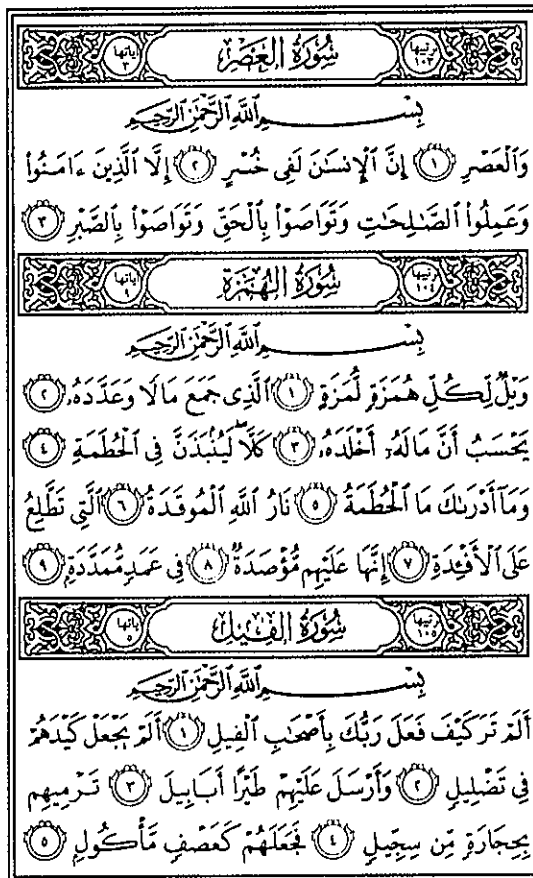 ترتيبها ١٠٣ سُورَةُ العَصْرِ آياتها ٣
بِسْمِ ٱللَّهِ ٱلرَّحْمَٰنِ ٱلرَّحِيمِ
وَٱلْعَصْرِ ١ إِنَّ ٱلْإِنسَٰنَ لَفِى خُسْرٍ ٢ إِلَّا ٱلَّذِينَ ءَامَنُوا۟
وَعَمِلُوا۟ ٱلصَّٰلِحَٰتِ وَتَوَاصَوْا۟ بِٱلْحَقِّ وَتَوَاصَوْا۟ بِٱلصَّبْرِ ٣
ترتيبها ١٠٤ سُورَةُ الهُمَزَةِ آياتها ٩
بِسْمِ ٱللَّهِ ٱلرَّحْمَٰنِ ٱلرَّحِيمِ
وَيْلٌ لِّكُلِّ هُمَزَةٍ لُّمَزَةٍ ١ ٱلَّذِى جَمَعَ مَالًا وَعَدَّدَهُۥ ٢
يَحْسَبُ أَنَّ مَالَهُۥٓ أَخْلَدَهُۥ ٣ كَلَّا ۖ لَيُنۢبَذَنَّ فِى ٱلْحُطَمَةِ ٤
وَمَآ أَدْرَىٰكَ مَا ٱلْحُطَمَةُ ٥ نَارُ ٱللَّهِ ٱلْمُوقَدَةُ ٦ ٱلَّتِى تَطَّلِعُ
عَلَى ٱلْأَفْـِٔدَةِ ٧ إِنَّهَا عَلَيْهِم مُّؤْصَدَةٌ ٨ فِى عَمَدٍ مُّمَدَّدَةٍۭ ٩
ترتيبها ١٠٥ سُورَةُ الفِيلِ آياتها ٥
بِسْمِ ٱللَّهِ ٱلرَّحْمَٰنِ ٱلرَّحِيمِ
أَلَمْ تَرَ كَيْفَ فَعَلَ رَبُّكَ بِأَصْحَٰبِ ٱلْفِيلِ ١ أَلَمْ يَجْعَلْ كَيْدَهُمْ
فِى تَضْلِيلٍ ٢ وَأَرْسَلَ عَلَيْهِمْ طَيْرًا أَبَابِيلَ ٣ تَرْمِيهِم
بِحِجَارَةٍ مِّن سِجِّيلٍ ٤ فَجَعَلَهُمْ كَعَصْفٍ مَّأْكُولٍۭ ٥